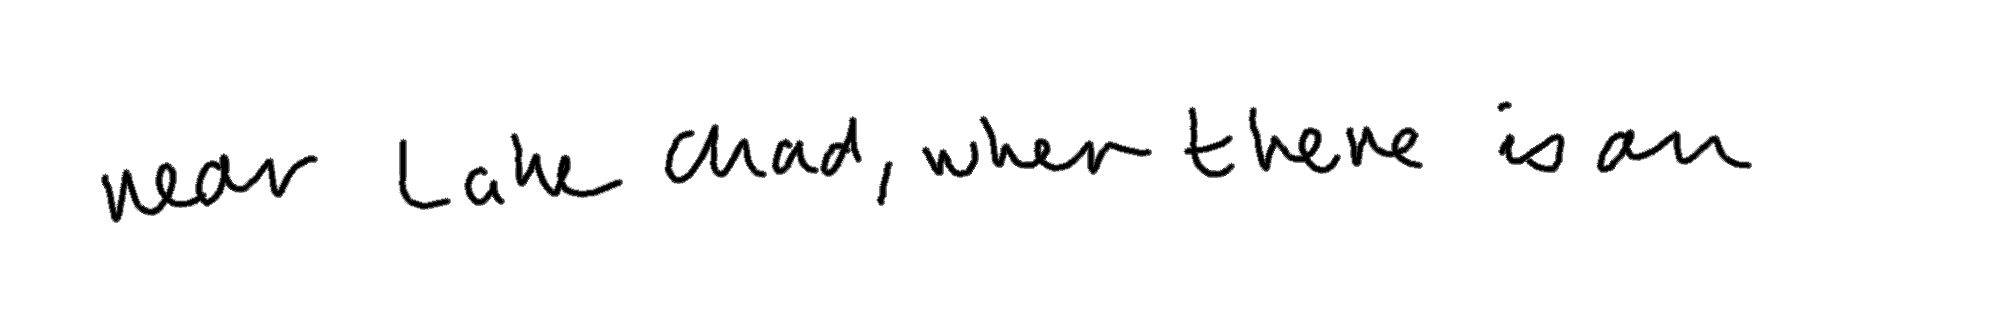 near Lake Chad, wher there is an